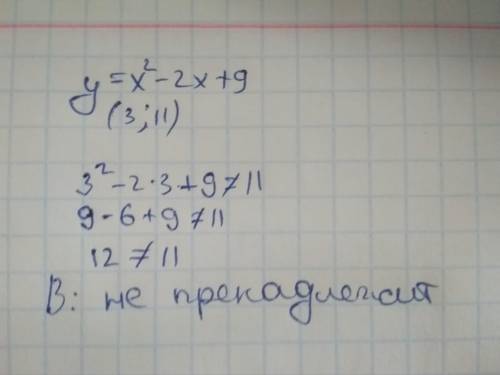 y = x² - 2x + 9
(3; 11)
3² - 2·3 + 9 ≠ 11
9 - 6 + 9 ≠ 11
12 ≠ 11
В: не пренадлежит